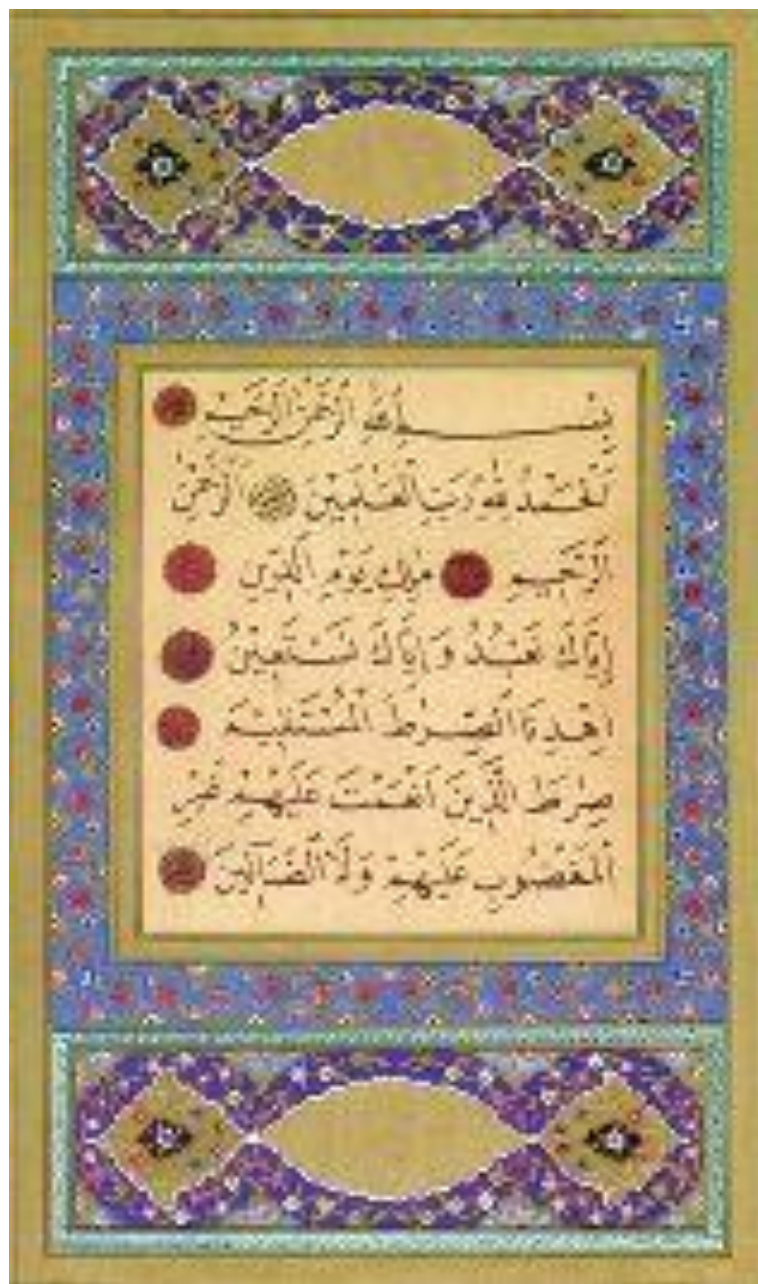 بِسْمِ اللّٰهِ الرَّحْمٰنِ الرَّحِيمِ
اَلْحَمْدُ لِلّٰهِ رَبِّ الْعٰلَمِينَ اَلرَّحْمٰنِ
الرَّحِيمِ مٰلِكِ يَوْمِ الدِّينِ
إِيَّاكَ نَعْبُدُ وَإِيَّاكَ نَسْتَعِينُ
اِهْدِنَا الصِّرٰطَ الْمُسْتَقِيمَ
صِرٰطَ الَّذِينَ اَنْعَمْتَ عَلَيْهِمْ غَيْرِ
الْمَغْضُوبِ عَلَيْهِمْ وَلَا الضَّآلِّينَ